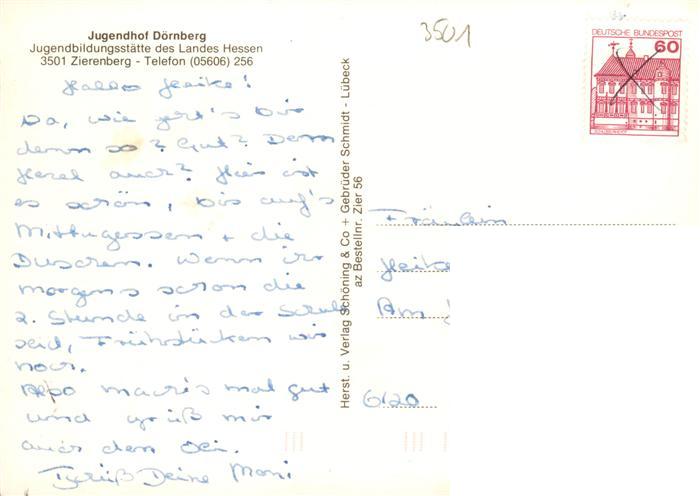 Jugendhof Dörnberg
Jugendbildungsstätte des Landes Hessen
3501 Zierenberg - Telefon (05606) 256
3501
DEUTSCHE BUNDESPOST
60
Hallo Heike!
Na, wie geht's Dir
denn so? Gut? Dem
auch? Hier ist
es schön, bis auf's
Mittagessen + die
Duschen. Wenn ihr
morgens schon die
2. Stunde in der Schule
seid, Frühstücken wir
noch.
Also mach's mal gut
und grüß mir
auch den
Gruß Deine Moni
Herst. u. Verlag Schöning & Co + Gebrüder Schmidt - Lübeck
az Bestellnr. Zier 56
Fräulein
Heike
Am
6120